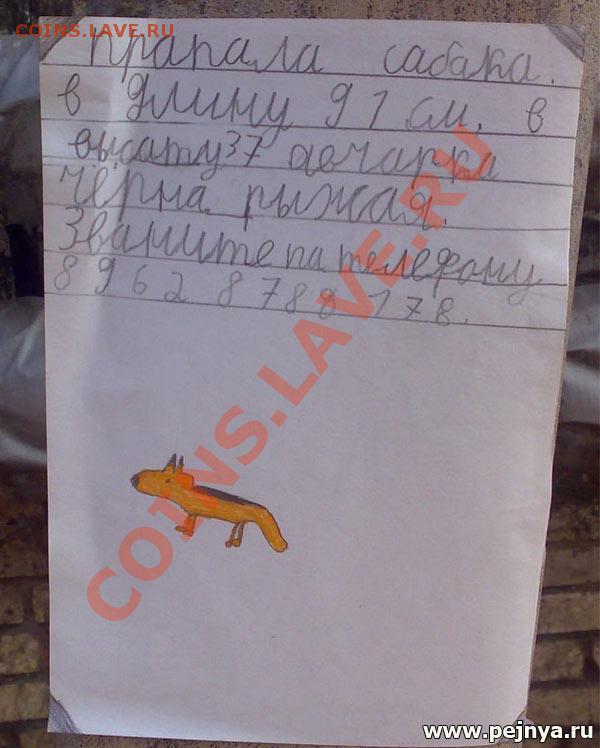 COINS.LAVE.RU
прапала сабака.
в длину 91 см. в
высату 37 авчарка
чёрна рыжая.
Званите па телефону
8 962 8788178.
COINS.LAVE.RU
www.pejnya.ru